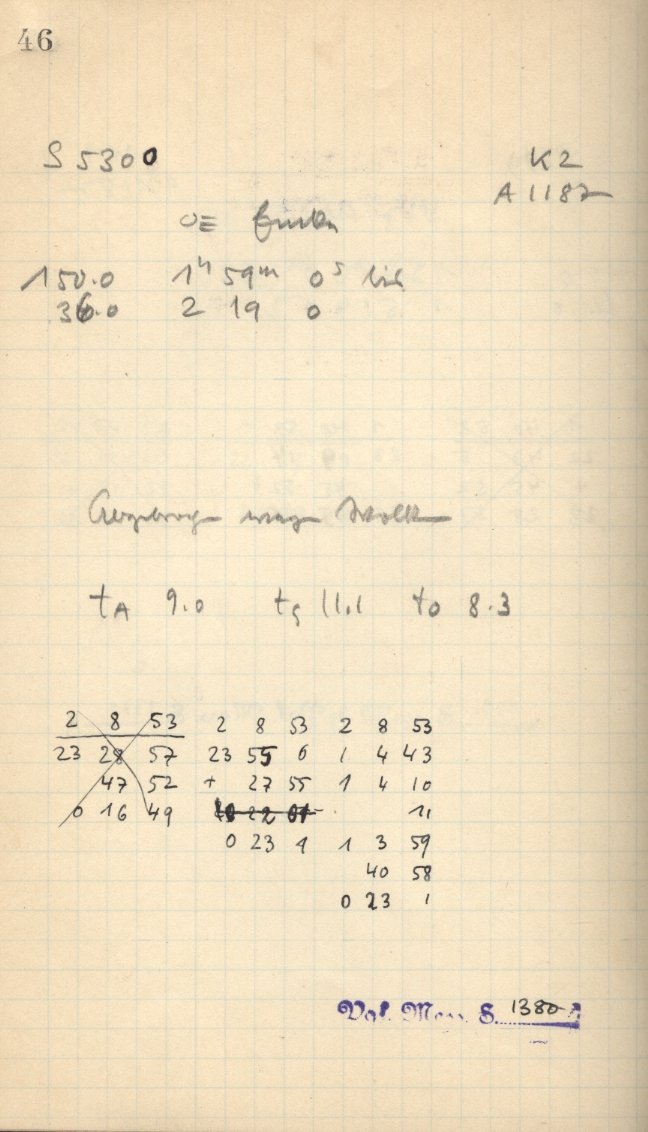 46
S 5300 K2
A 1187
150.0 1h 59m 0s bis
36.0 2 19 0
tA 9.0 ts 11.1 to 8.3
2 8 53 2 8 53 2 8 53
23 28 57 23 55 6 1 4 43
47 52 + 27 55 1 4 10
0 16 49 11
0 23 1 1 3 59
40 58
0 23 1
S. 1380